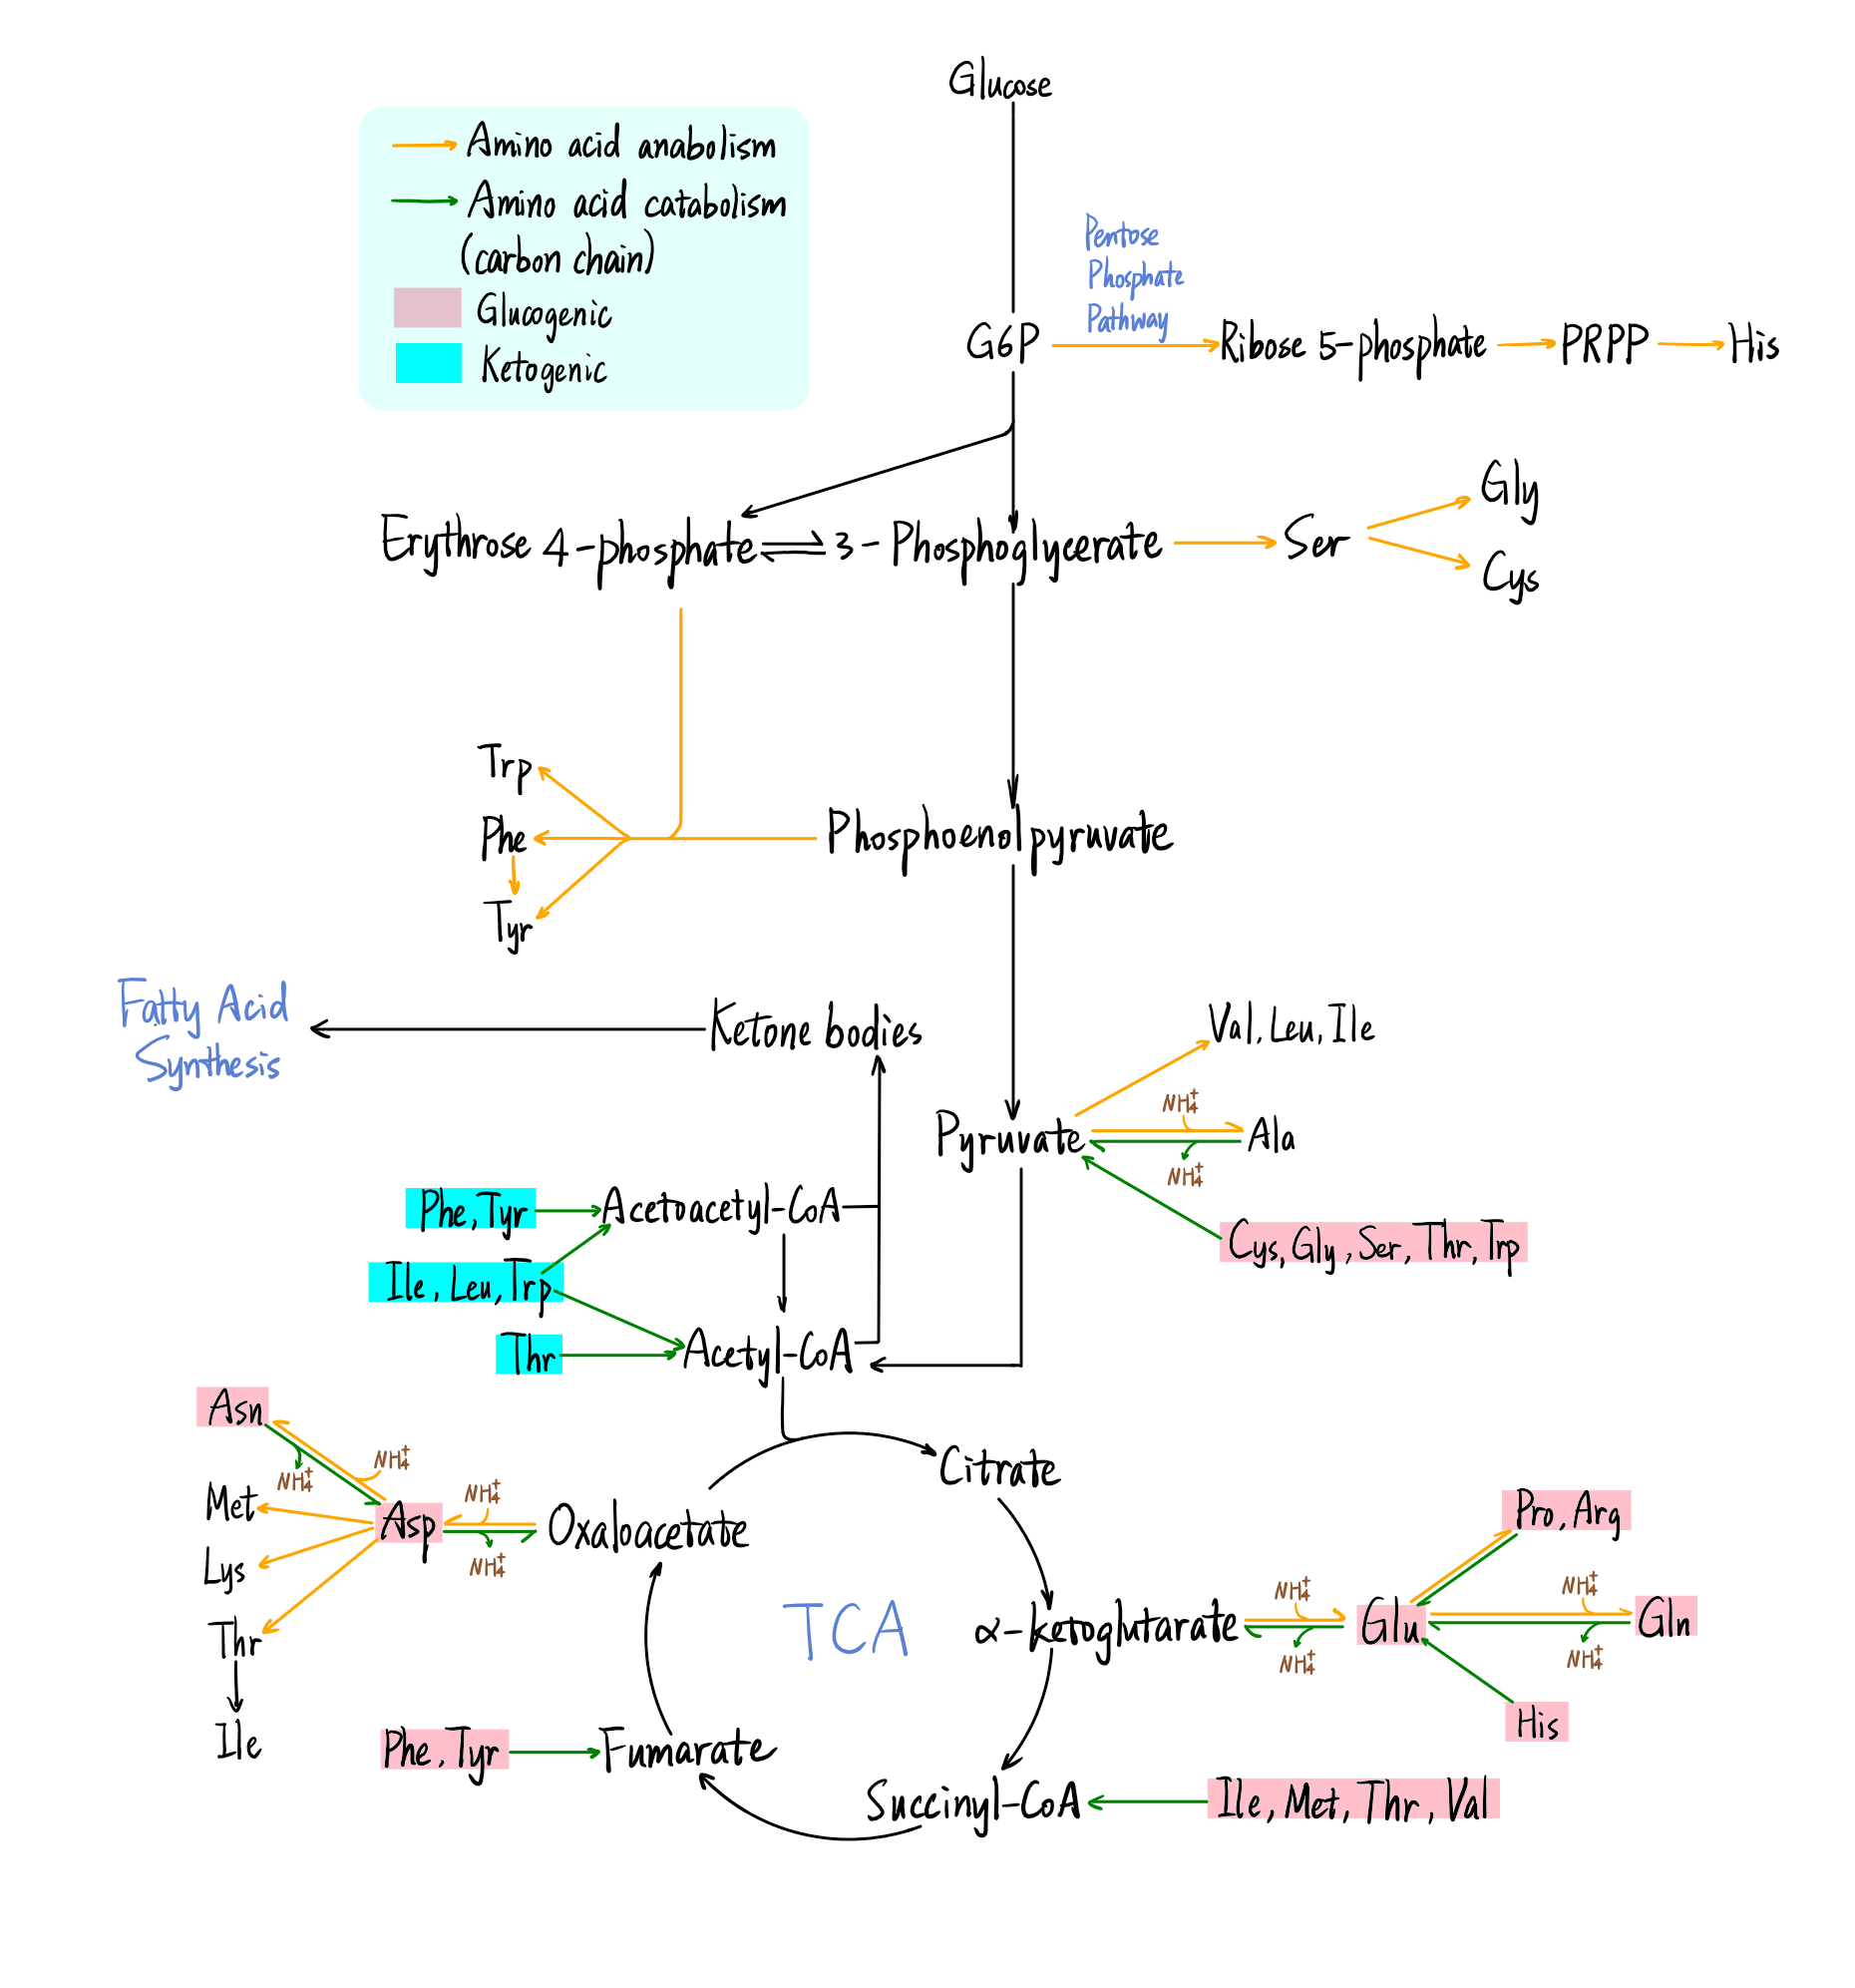 Glucose
Amino acid anabolism
Amino acid catabolism
(carbon chain)
Glucogenic
Ketogenic
Pentose
Phosphate
Pathway
G6P
Ribose 5-phosphate
PRPP
His
Erythrose 4-phosphate
3-Phosphoglycerate
Ser
Gly
Cys
Trp
Phe
Tyr
Phosphoenolpyruvate
Fatty Acid
Synthesis
Ketone bodies
Val, Leu, Ile
NH4+
Pyruvate
Ala
NH4+
Phe, Tyr
Acetoacetyl-CoA
Cys, Gly, Ser, Thr, Trp
Ile, Leu, Trp
Thr
Acetyl-CoA
Asn
NH4+
NH4+
Citrate
Met
Asp
NH4+
Oxaloacetate
NH4+
Lys
Thr
Ile
TCA
α-ketoglutarate
NH4+
NH4+
Glu
Pro, Arg
NH4+
Gln
NH4+
His
Phe, Tyr
Fumarate
Succinyl-CoA
Ile, Met, Thr, Val